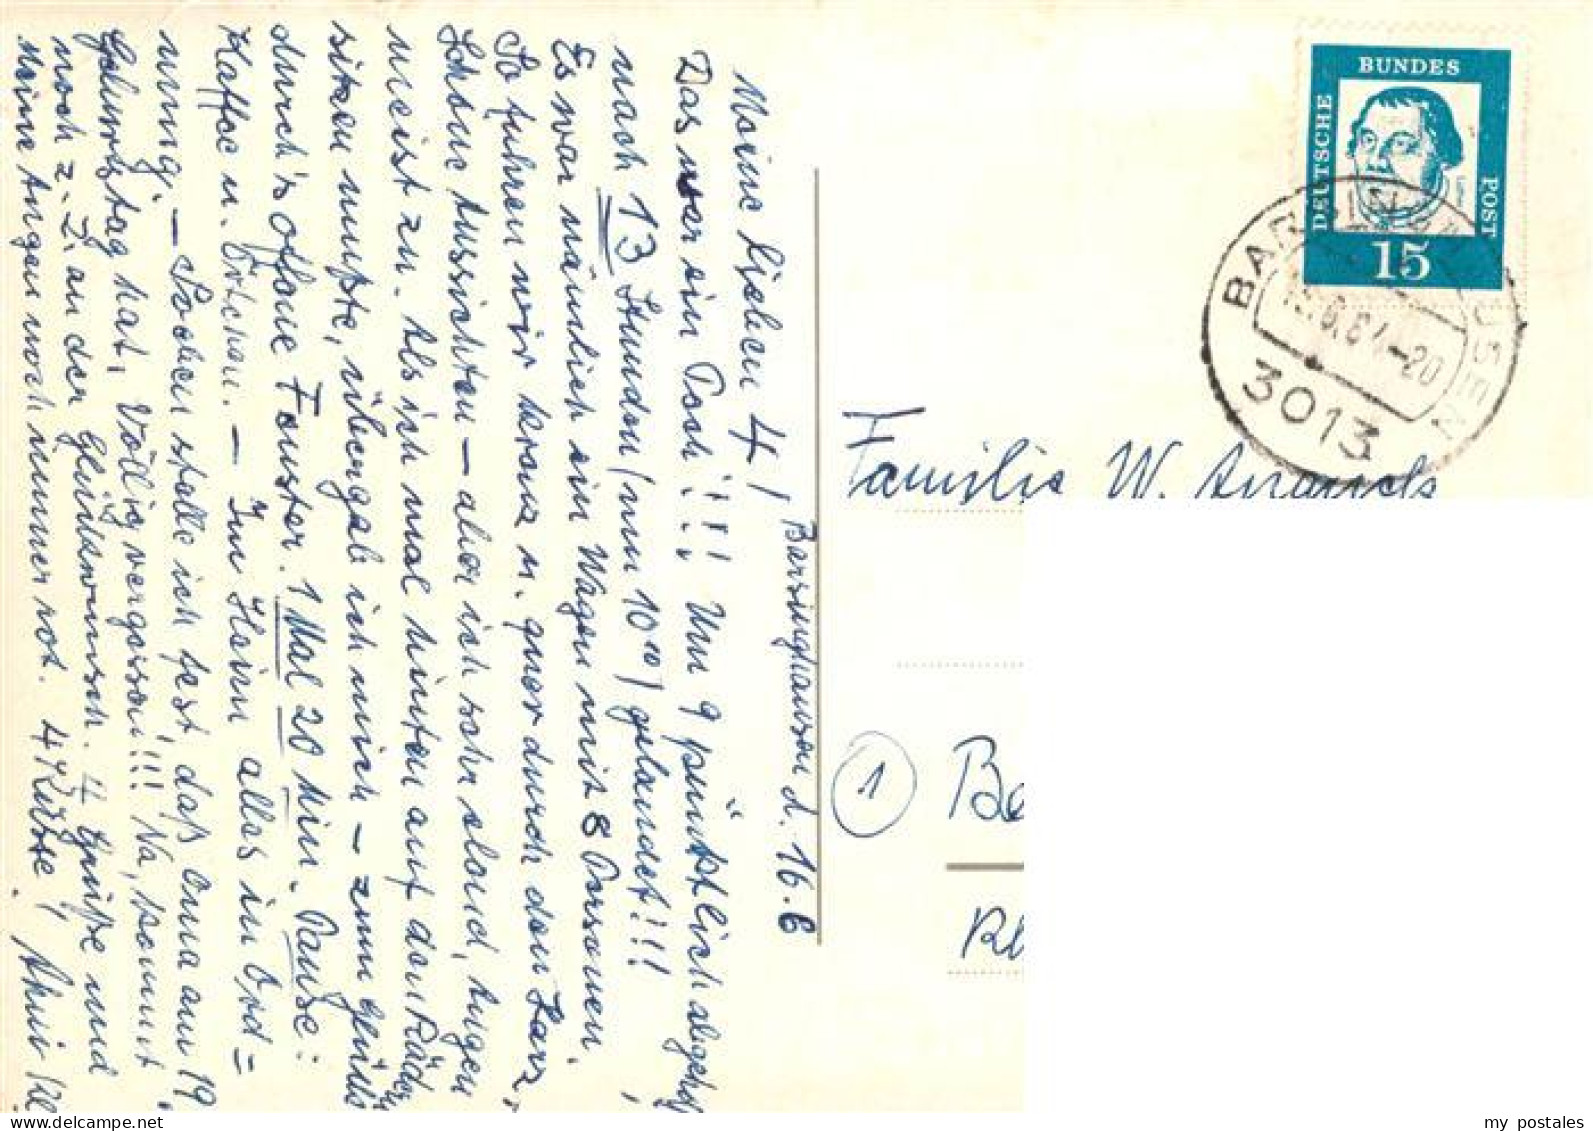 Barsinghausen d. 16.6
Meine lieben 4!
Das war ein Pech!!! Um 9 pünktlich abgeholt,
nach 13 Stunden (um 10¹⁰) gelandet!!!
Es war nämlich ein Wagen mit 8 Personen.
So fuhren wir kreuz u. quer durch den Harz,
schöne Aussichten – aber ich sehr elend, Augen
meist zu. Als ich mal hinten auf den Räder
sitzen mußte, übergab ich mich – zum Glück
durch's offene Fenster. 1 Mal 20 Min. Pause:
Kaffee u. Örtchen. – Im Heim alles in Ord=
nung. – Soeben stelle ich fest, daß Oma am 19.
Geburtstag hat, völlig vergessen!!! Na, kommt
noch z. Z. an der Glückwunsch. 4 Grüße und
4 Küsse,
Meine Augen noch immer rot.
Familie W.
1
BUNDES
DEUTSCHE
POST
15
BARSINGHAUSEN
3013
my_postales